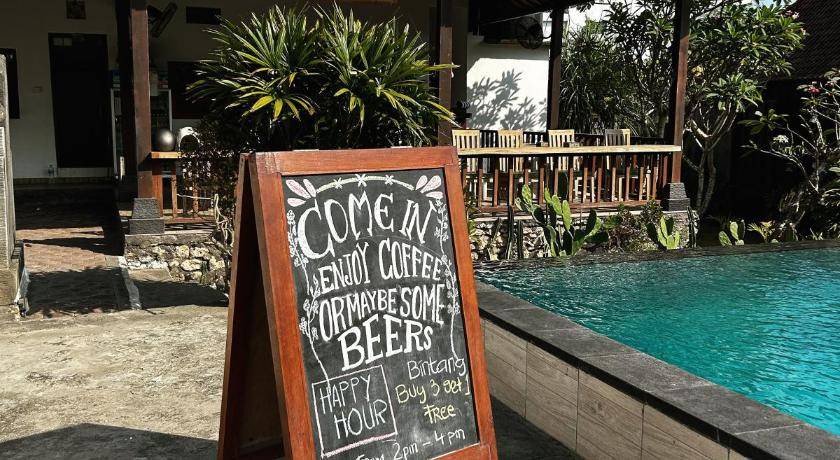 COME IN
ENJOY COFFEE
OR MAYBE SOME
BEERS
HAPPY
HOUR
Bintang
Buy 3 get 1
free
From 2pm - 4pm